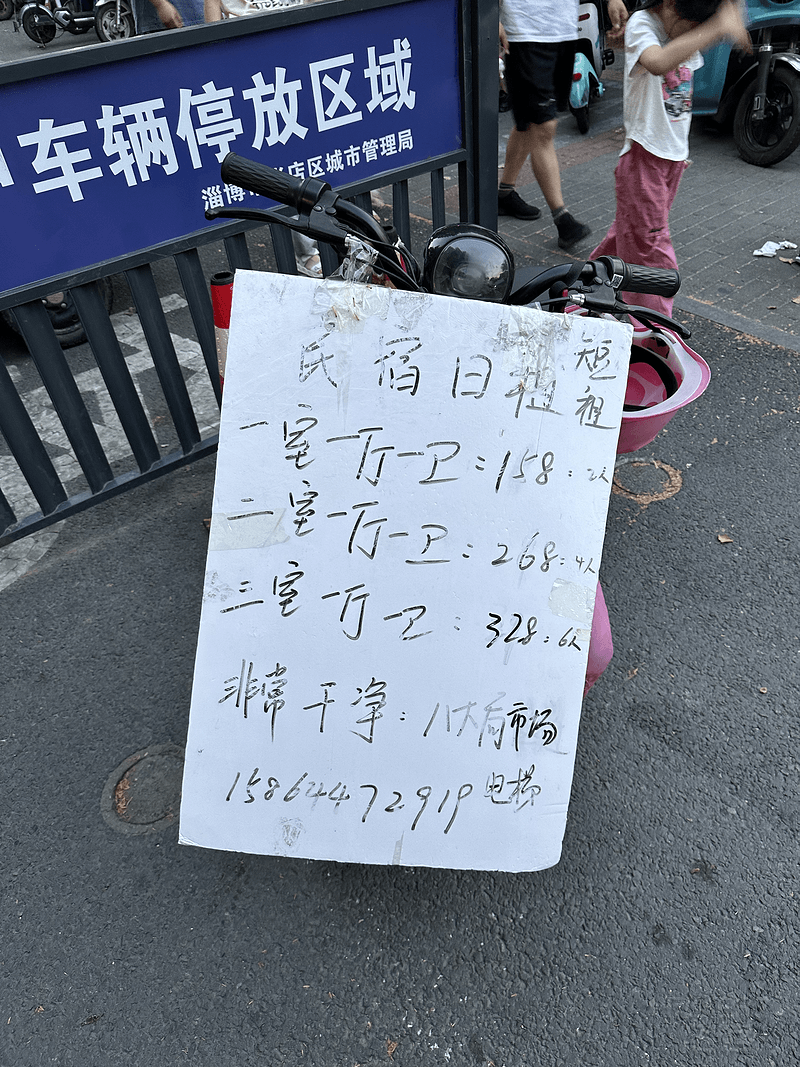 车辆停放区域
淄博市张店区城市管理局
民宿日租 短租
一室一厅一卫:158:2人
二室一厅一卫:268:4人
三室一厅一卫:328:6人
非常干净:八大局市场
15864472919 电梯